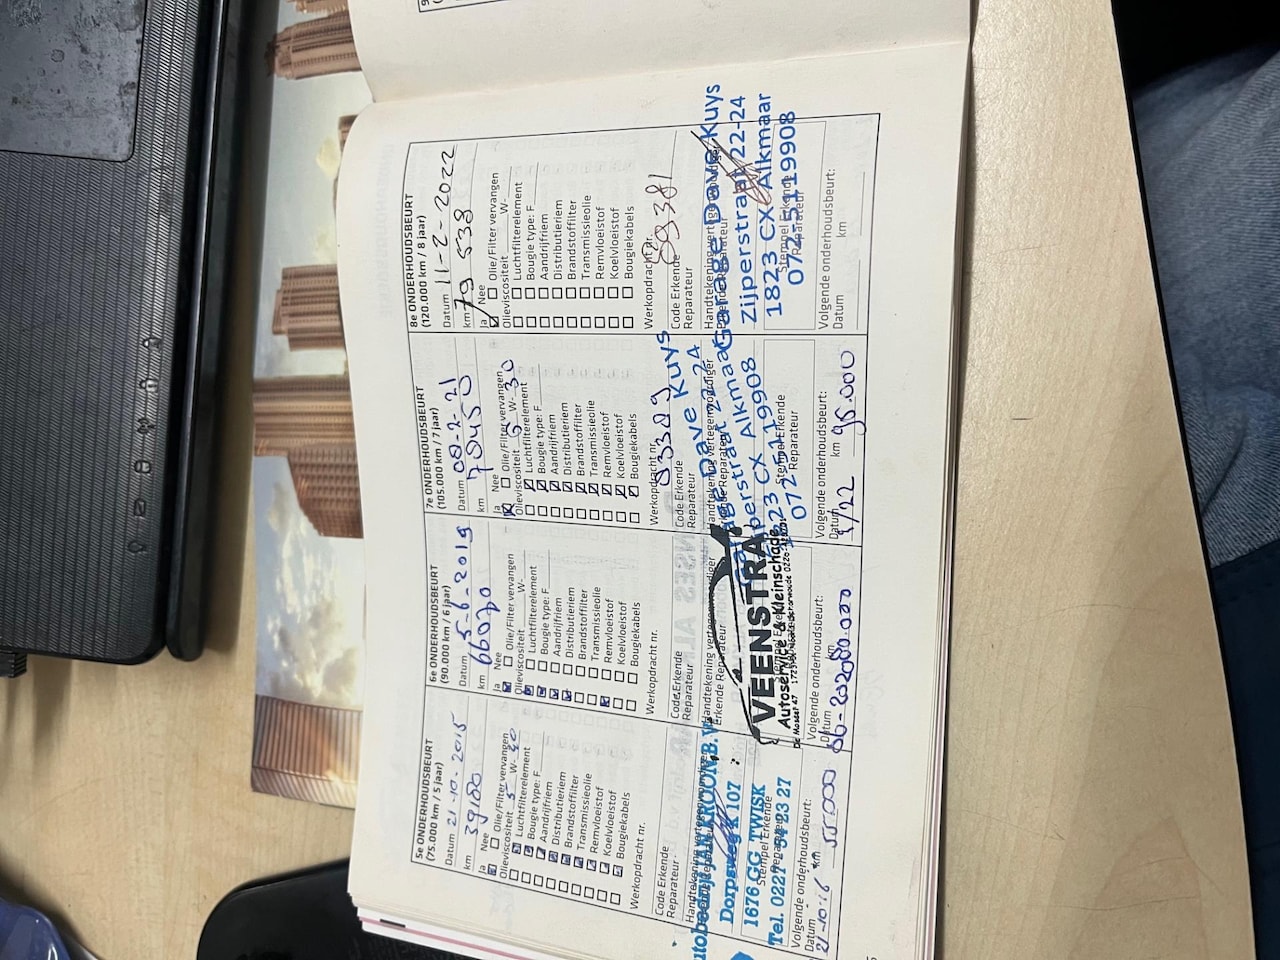 5e ONDERHOUDSBEURT
(75.000 km / 5 jaar)
Datum 21-10-2015
km 39100
Ja Nee
Olie/Filter vervangen
Olieviscositeit 5 W-
Luchtfilterelement
Bougie type: F
Aandrijfriem
Distributieriem
Brandstoffilter
Transmissieolie
Remvloeistof
Koelvloeistof
Bougiekabels
Werkopdracht nr.
Code Erkende
Reparateur
Handtekening vertegenwoordiger
JAN KROON B.V.
Dorpsweg 107
1676 GG TWISK
Stempel Erkende
Reparateur
Tel. 0227-54 23 27
Volgende onderhoudsbeurt:
Datum km
21-10-16 55000
6e ONDERHOUDSBEURT
(90.000 km / 6 jaar)
Datum 5-6-2019
km 66070
Ja Nee
Olie/Filter vervangen
Olieviscositeit W-
Luchtfilterelement
Bougie type: F
Aandrijfriem
Distributieriem
Brandstoffilter
Transmissieolie
Remvloeistof
Koelvloeistof
Bougiekabels
Werkopdracht nr.
Code Erkende
Reparateur
Handtekening vertegenwoordiger
Erkende Reparateur
VEENSTRA
Autoservice & Kleinschade
Volgende onderhoudsbeurt:
Datum km
06-2020 80.000
7e ONDERHOUDSBEURT
(105.000 km / 7 jaar)
Datum 08-2-21
km 70450
Ja Nee
Olie/Filter vervangen
Olieviscositeit 5 W-30
Luchtfilterelement
Bougie type: F
Aandrijfriem
Distributieriem
Brandstoffilter
Transmissieolie
Remvloeistof
Koelvloeistof
Bougiekabels
Werkopdracht nr.
Code Erkende
Reparateur
Handtekening vertegenwoordiger
Erkende Reparateur
Garage Dave Kuys
Zijperstraat 22-24
1823 CX Alkmaar
072-5119908
Stempel Erkende
Reparateur
Volgende onderhoudsbeurt:
Datum km
2/22 95.000
8e ONDERHOUDSBEURT
(120.000 km / 8 jaar)
Datum 11-2-2022
km 79 538
Ja Nee
Olie/Filter vervangen
Olieviscositeit W-
Luchtfilterelement
Bougie type: F
Aandrijfriem
Distributieriem
Brandstoffilter
Transmissieolie
Remvloeistof
Koelvloeistof
Bougiekabels
Werkopdracht nr.
89381
Code Erkende
Reparateur
Handtekening vertegenwoordiger
Garage Dave Kuys
Zijperstraat 22-24
1823 CX Alkmaar
Stempel Erkende
Reparateur
072-5119908
Volgende onderhoudsbeurt:
Datum km